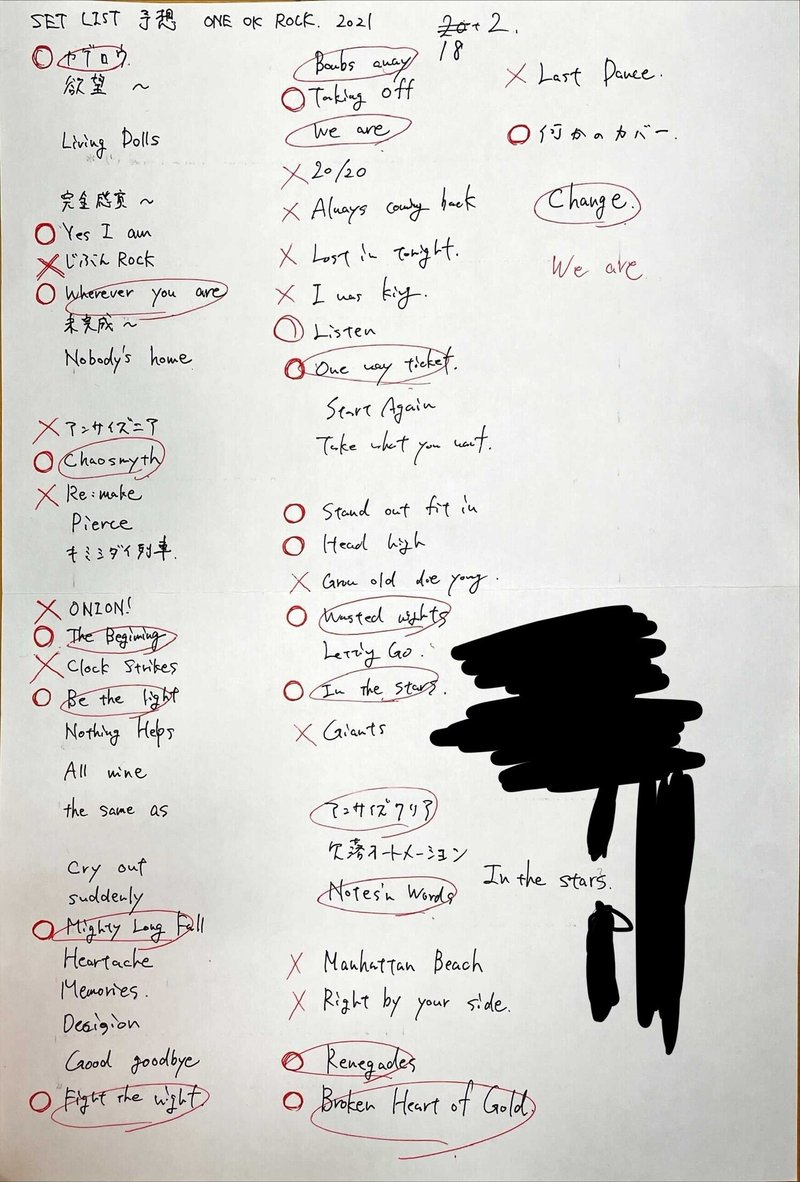 SET LIST 予想 ONE OK ROCK. 2021
20+2.
18
カゲロウ
欲望 〜
Living Dolls
完全感覚 〜
Yes I am
じぶんROCK
Wherever you are
未完成 〜
Nobody's home
アンサイズニア
Chaosmyth
Re:make
Pierce
キミシダイ列車.
ONION!
The Begining
Clock Strikes
Be the light
Nothing Helps
All mine
the same as
Cry out
suddenly
Mighty Long Fall
Heartache
Memories.
Decigion
Good goodbye
Fight the night.
Bombs away
Taking off
We are
20/20
Always coming back
Lost in tonight.
I was king.
Listen
One way ticket.
Start Again
Take what you want.
Stand out fit in
Head high
Grow old die young.
Wasted nights
Letting Go.
In the stars.
Giants
アンサイズクリア
欠落オートメーション
Notes'n Words
Manhattan Beach
Right by your side.
Renegades
Broken Heart of Gold.
Last Dance.
何かのカバー.
Change.
We are
In the stars.